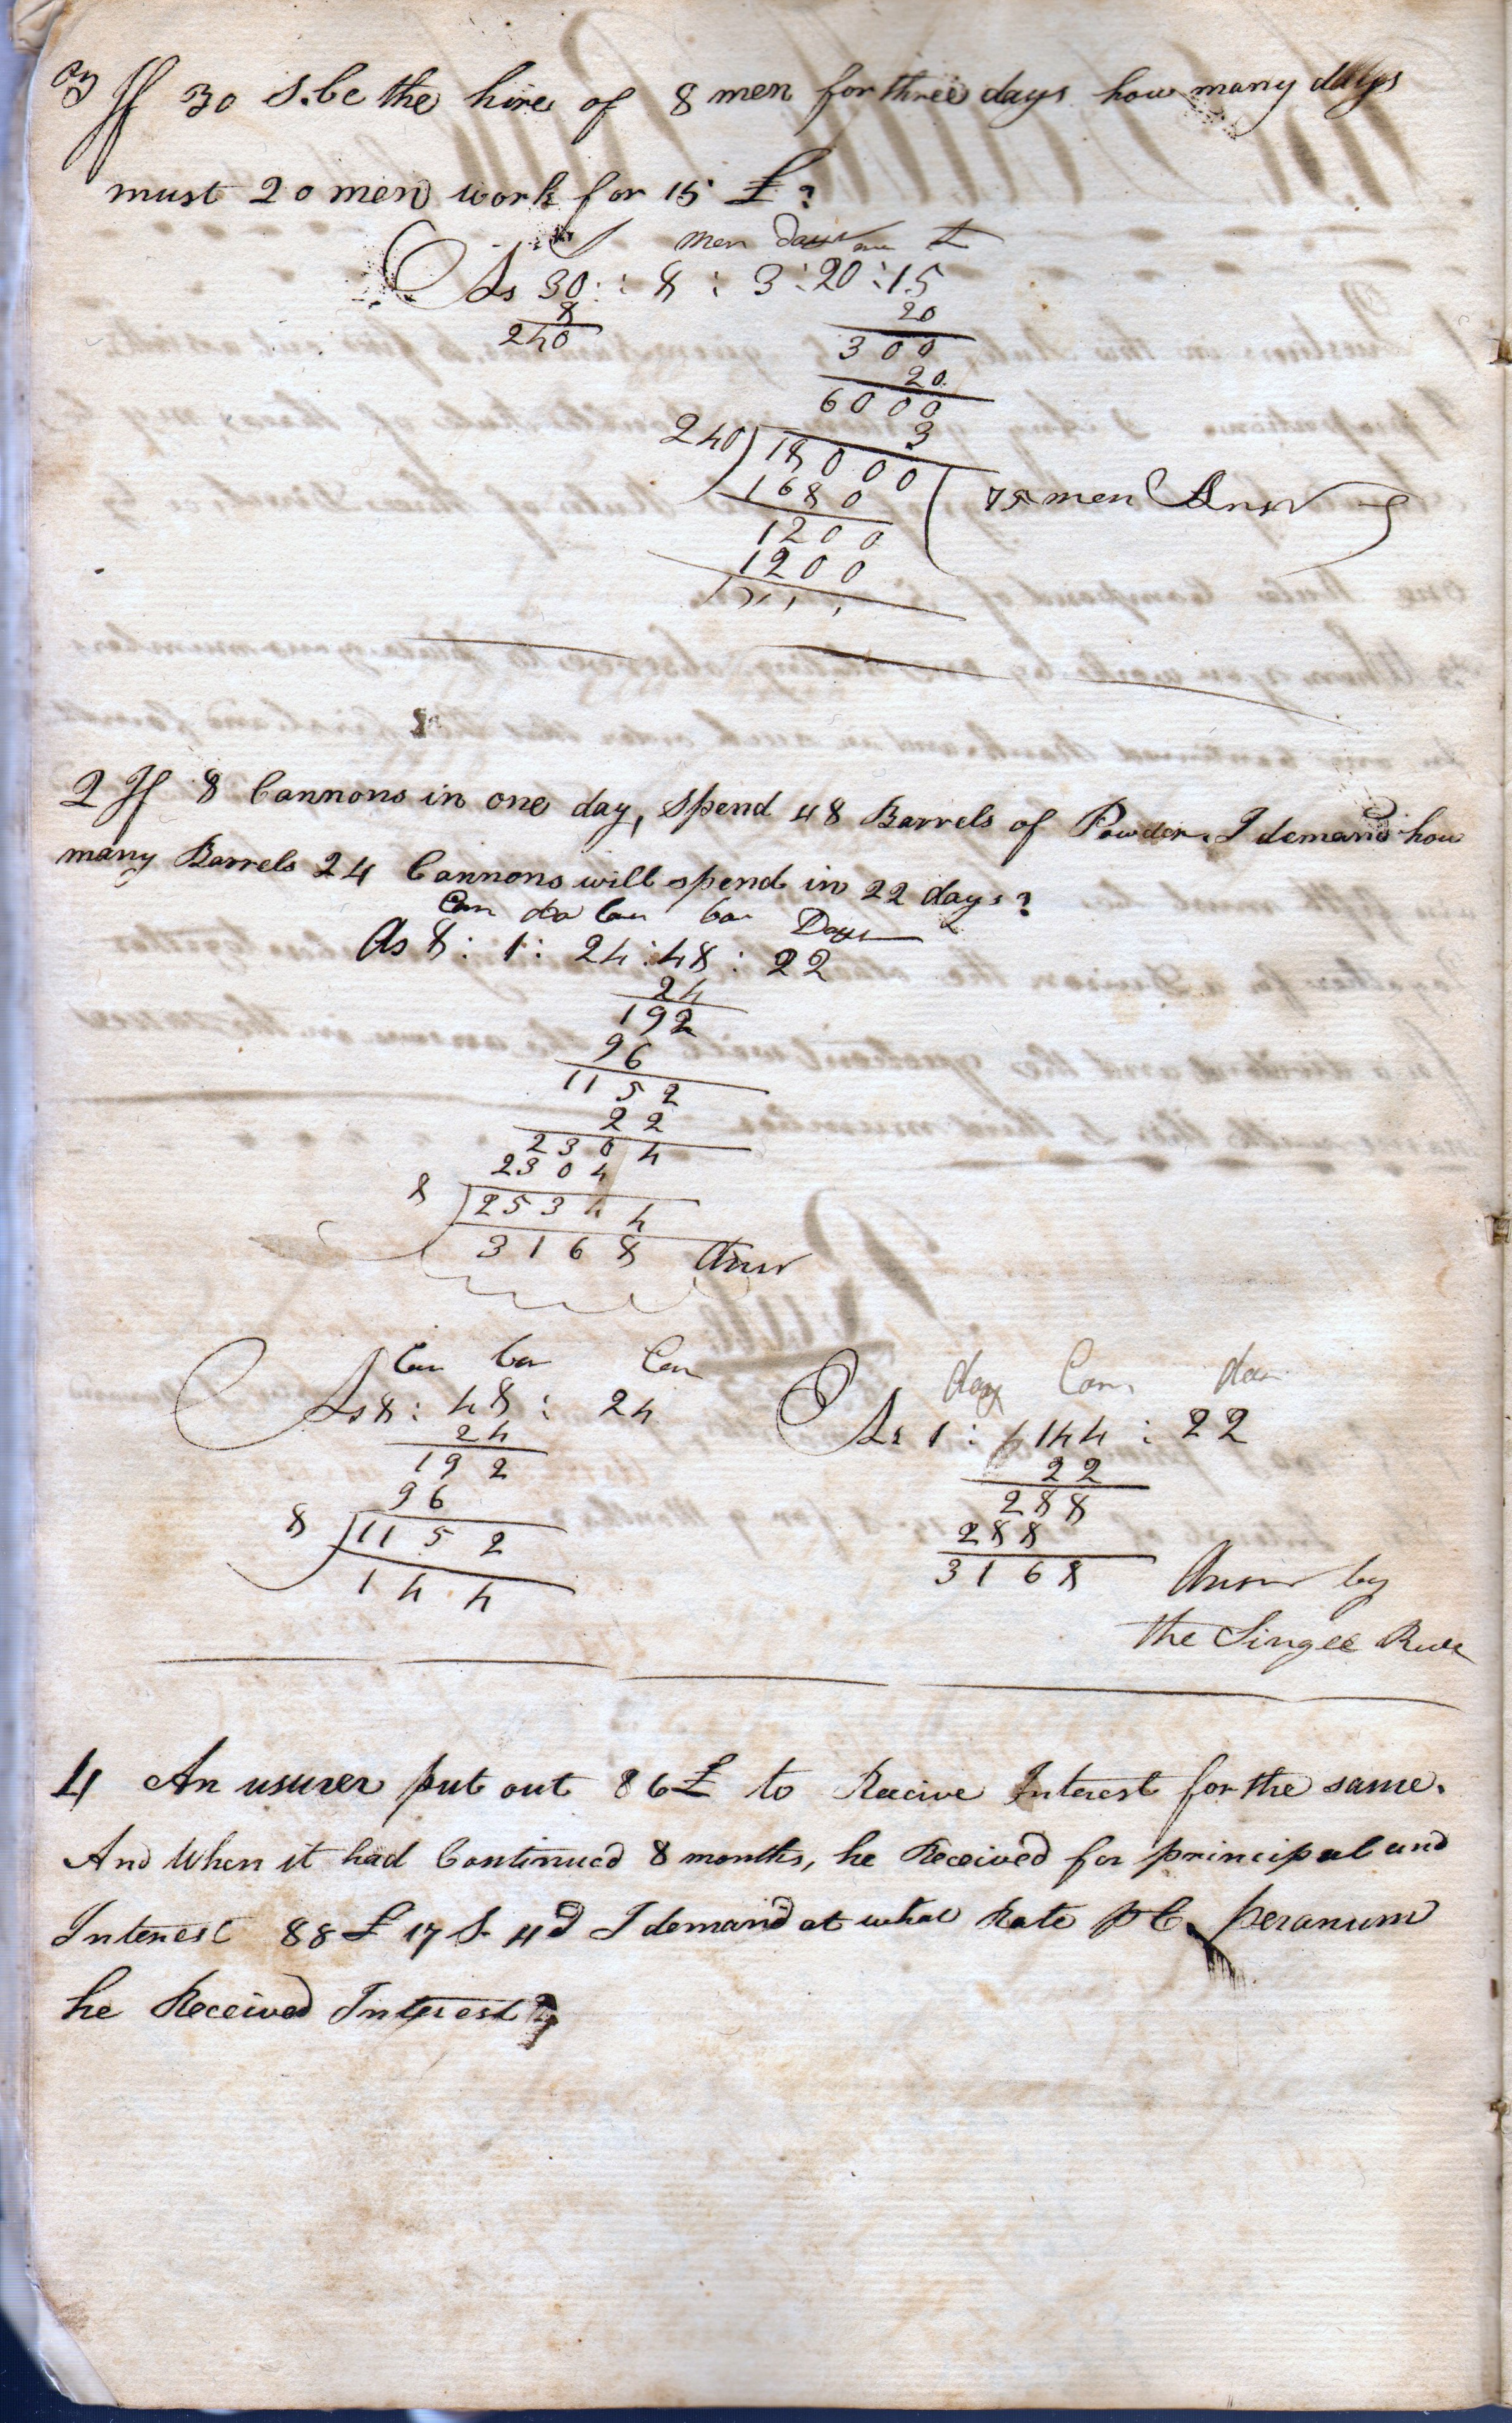 3 If 30 S. be the hire of 8 men for three days how many days
must 20 men work for 15 £?
S men days m £
As 30 : : 8 : 3 : 20 : 15
8
20
240
300
20
6000
3
240) 18000 ( 75 men Answ
1680
1200
1200
2 If 8 Cannons in one day, spend 48 Barrels of Powder. I demand how
many Barrels 24 Cannons will spend in 22 days?
Can da Can bar Days
As 8 : 1 : 24 : 48 : 22
24
192
96
1152
22
2304
2304
8 25344
3168 Answ
Can bar Can
As 8 : 48 : 24
24
192
96
8 1152
144
day Can da
As 1 : 144 : 22
22
288
288
3168 Answr by
the Singel Rule
4 An usurer put out 86£ to Receive Interest for the same.
And When it had Continued 8 months, he Received for principal and
Interest 88£ 17 S. 4d I demand at what Rate p C peranum
he Received Interest?